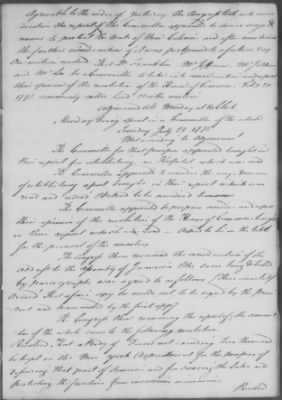 Agreeable to the order of yesterday the Congress took into consi-
deration the report of the Committee appointed to devise ways &
means to protect the trade of these Colonies and after some debate
the farther consideration of it was postponed to a future day
On motion resolved That Dr Franklin Mr Jefferson Mr J Adams
and Mr Lee be a Committee to take into consideration and report
their opinion of the resolution of the House of Commons Feby 20
1775 commonly called Lord North's motion
Adjourned till Monday at
Monday being spent in Committee of the whole
Tuesday July 25 1775
Met according to adjournment
The Committee for that purpose appointed brought in
their report for establishing an Hospital which was read
The Committee appointed to consider the ways & means
of establishing a post brought in their report which was
read and ordered to be considered tomorrow
The Committee appointed to prepare consider and report
their opinion of the resolution of the House of Commons brought
in their report which was read Ordered to lie on the table
for the perusal of the members
The Congress then resumed the consideration of the
address to the Assembly of Jamaica the same being debated
by paragraphs was agreed to as follows
Ordered that a fair copy be made out to be signed by the Presi-
dent and
The Congress then resuming the report of the commit-
tee of the whole came to the following resolution
Resolved That a Body of Forces not exceeding five thousand
be kept up in the New York department for the purpose of
defending that part of America and for securing the Lakes and
protecting the frontiers from incursions or invasion
Resolved